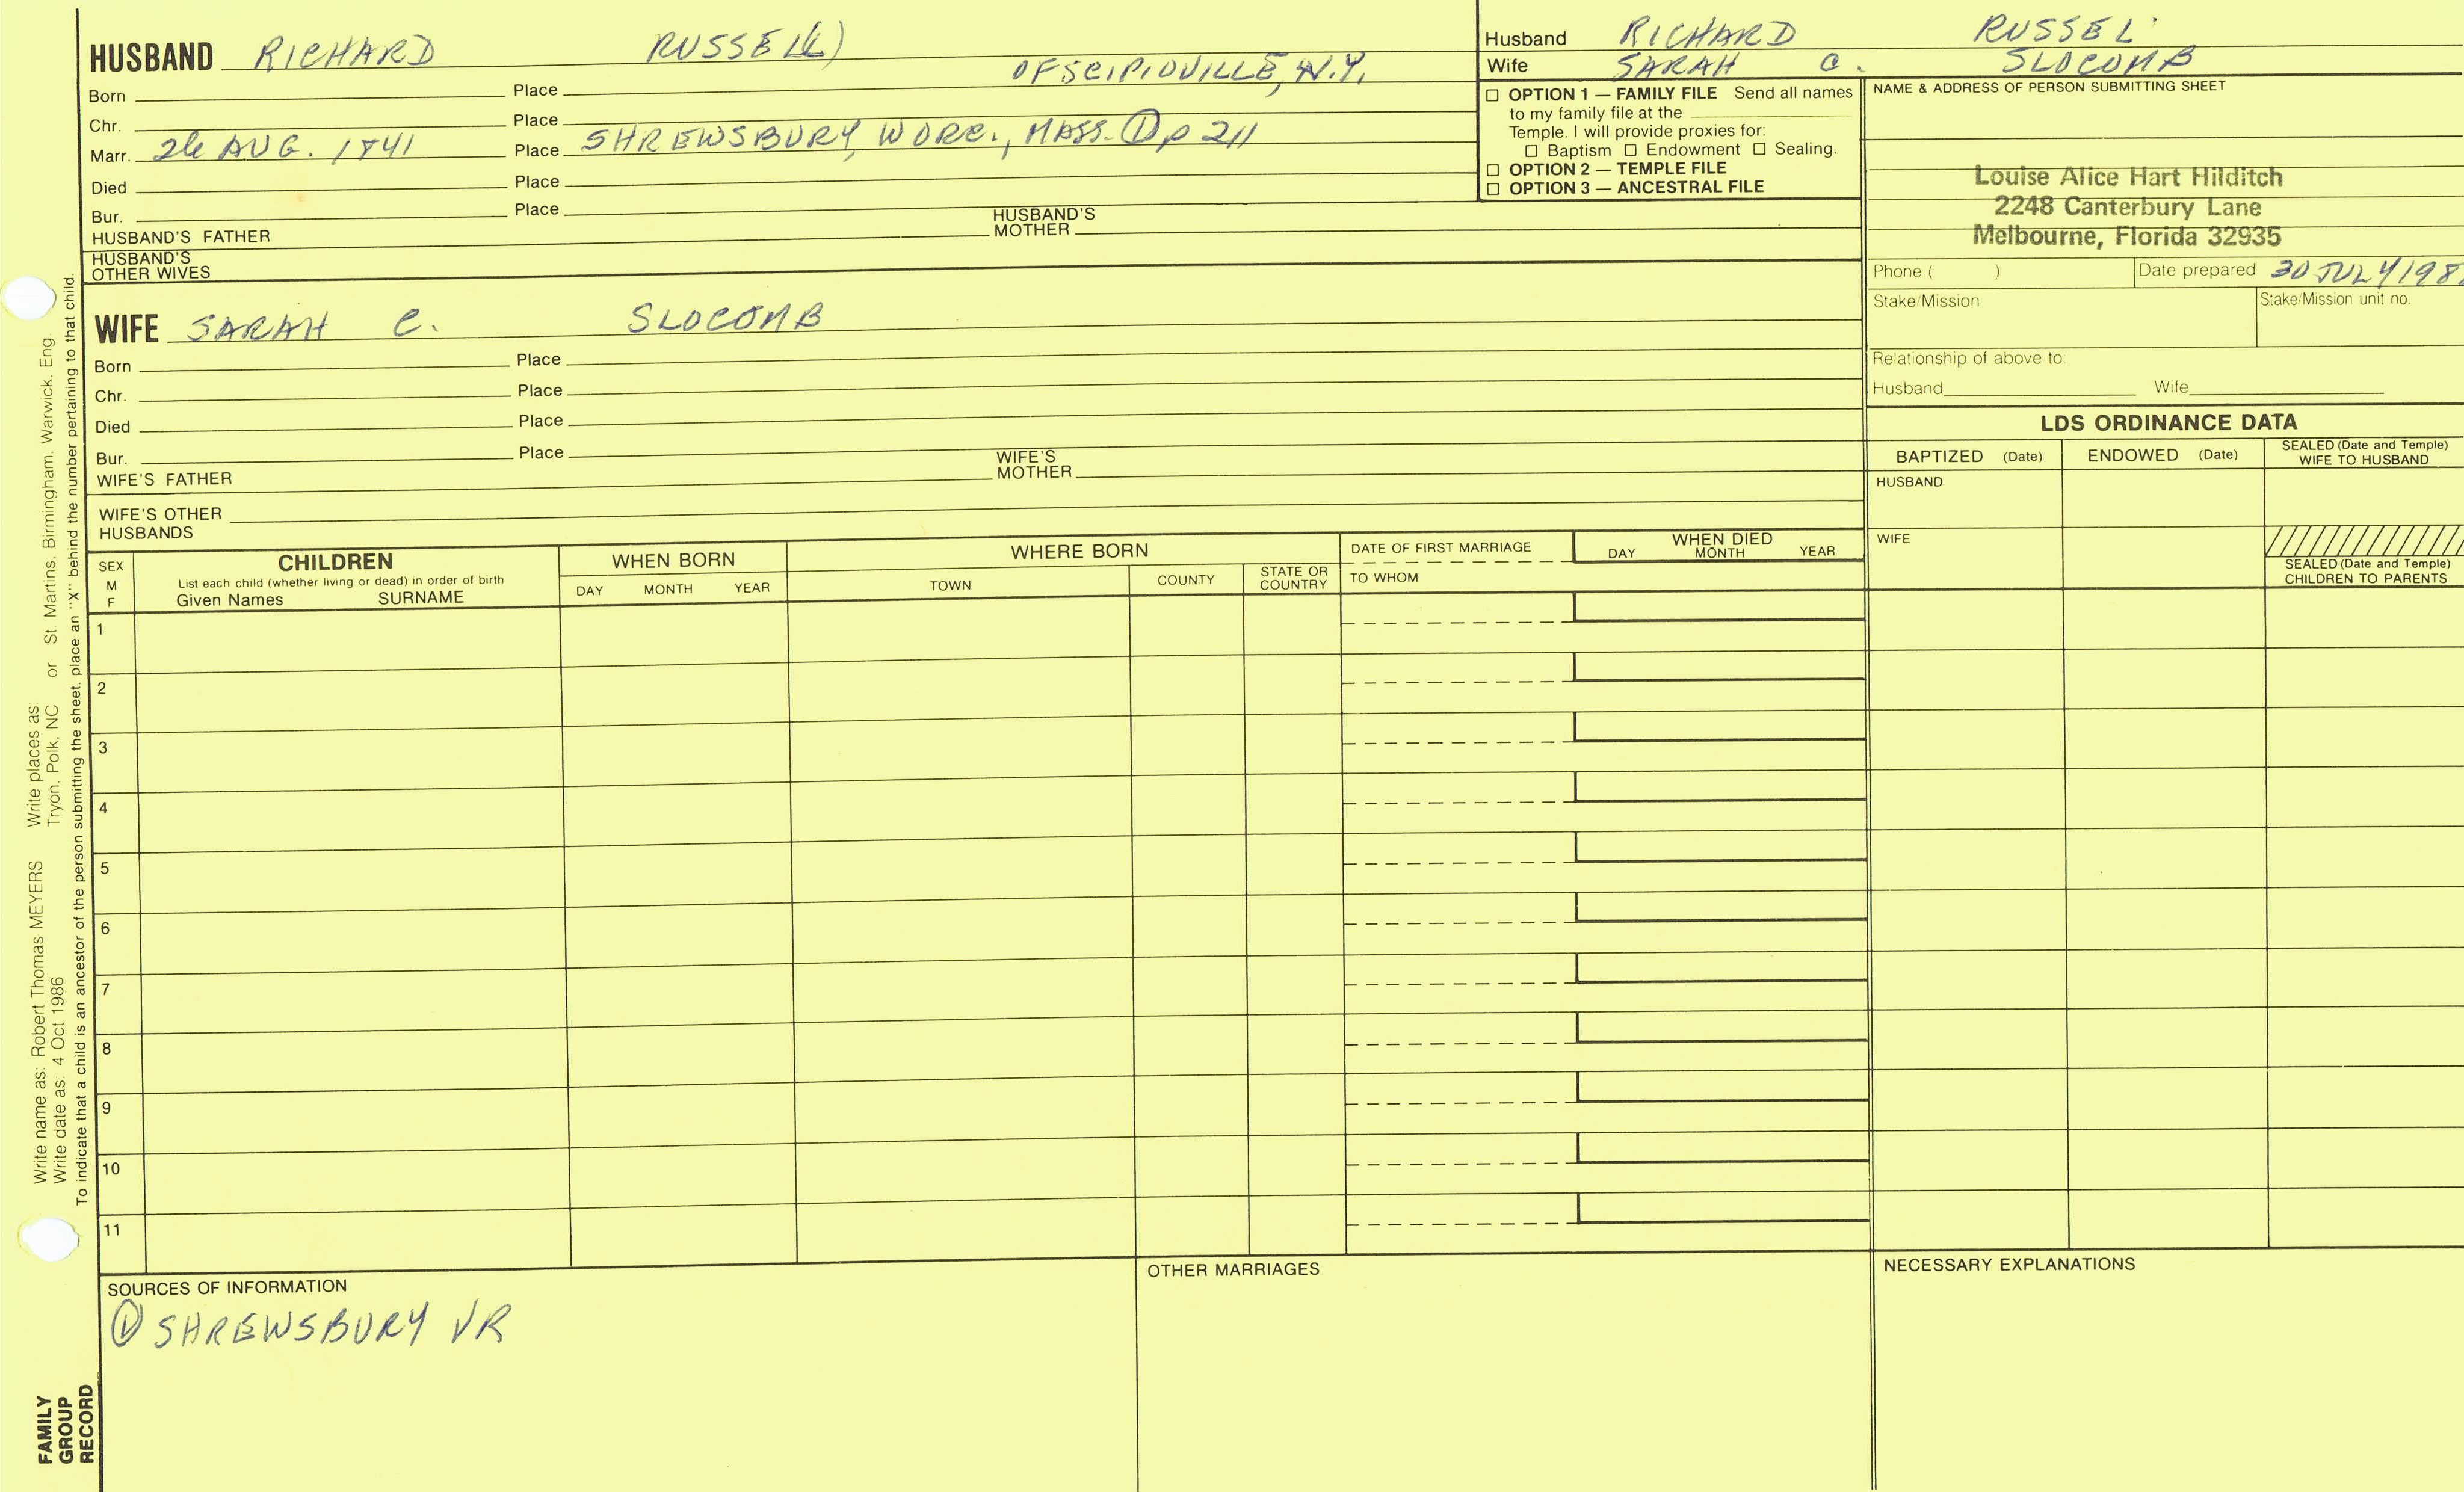 HUSBAND RICHARD RUSSEL(L)
OF SCIPIOVILLE, N.Y.
Born Place
Chr. Place
Marr. 26 AUG. 1841 Place SHREWSBURY, WORC., MASS. ① p 211
Died Place
Bur. Place
HUSBAND'S FATHER HUSBAND'S MOTHER
HUSBAND'S OTHER WIVES
WIFE SARAH C. SLOCOMB
Born Place
Chr. Place
Died Place
Bur. Place
WIFE'S FATHER WIFE'S MOTHER
WIFE'S OTHER HUSBANDS
Husband RICHARD RUSSEL
Wife SARAH C. SLOCOMB
☐ OPTION 1 — FAMILY FILE Send all names
to my family file at the
Temple. I will provide proxies for:
☐ Baptism ☐ Endowment ☐ Sealing.
☐ OPTION 2 — TEMPLE FILE
☐ OPTION 3 — ANCESTRAL FILE
NAME & ADDRESS OF PERSON SUBMITTING SHEET
Louise Alice Hart Hilditch
2248 Canterbury Lane
Melbourne, Florida 32935
Phone ( ) Date prepared 30 JULY
Stake/Mission Stake/Mission unit no.
Relationship of above to:
Husband Wife
LDS ORDINANCE DATA
BAPTIZED (Date) ENDOWED (Date) SEALED (Date and Temple) WIFE TO HUSBAND
HUSBAND
WIFE
SEALED (Date and Temple) CHILDREN TO PARENTS
SEX M F
CHILDREN
List each child (whether living or dead) in order of birth
Given Names SURNAME
WHEN BORN
DAY MONTH YEAR
WHERE BORN
TOWN COUNTY STATE OR COUNTRY
DATE OF FIRST MARRIAGE
TO WHOM
WHEN DIED
DAY MONTH YEAR
1
2
3
4
5
6
7
8
9
10
11
SOURCES OF INFORMATION
① SHREWSBURY VR
OTHER MARRIAGES
NECESSARY EXPLANATIONS
Write name as: Robert Thomas MEYERS Write places as:
Write date as: 4 Oct 1986 Tryon, Polk, NC or St. Martins, Birmingham, Warwick, Eng.
To indicate that a child is an ancestor of the person submitting the sheet, place an "X" behind the number pertaining to that child.
FAMILY
GROUP
RECORD